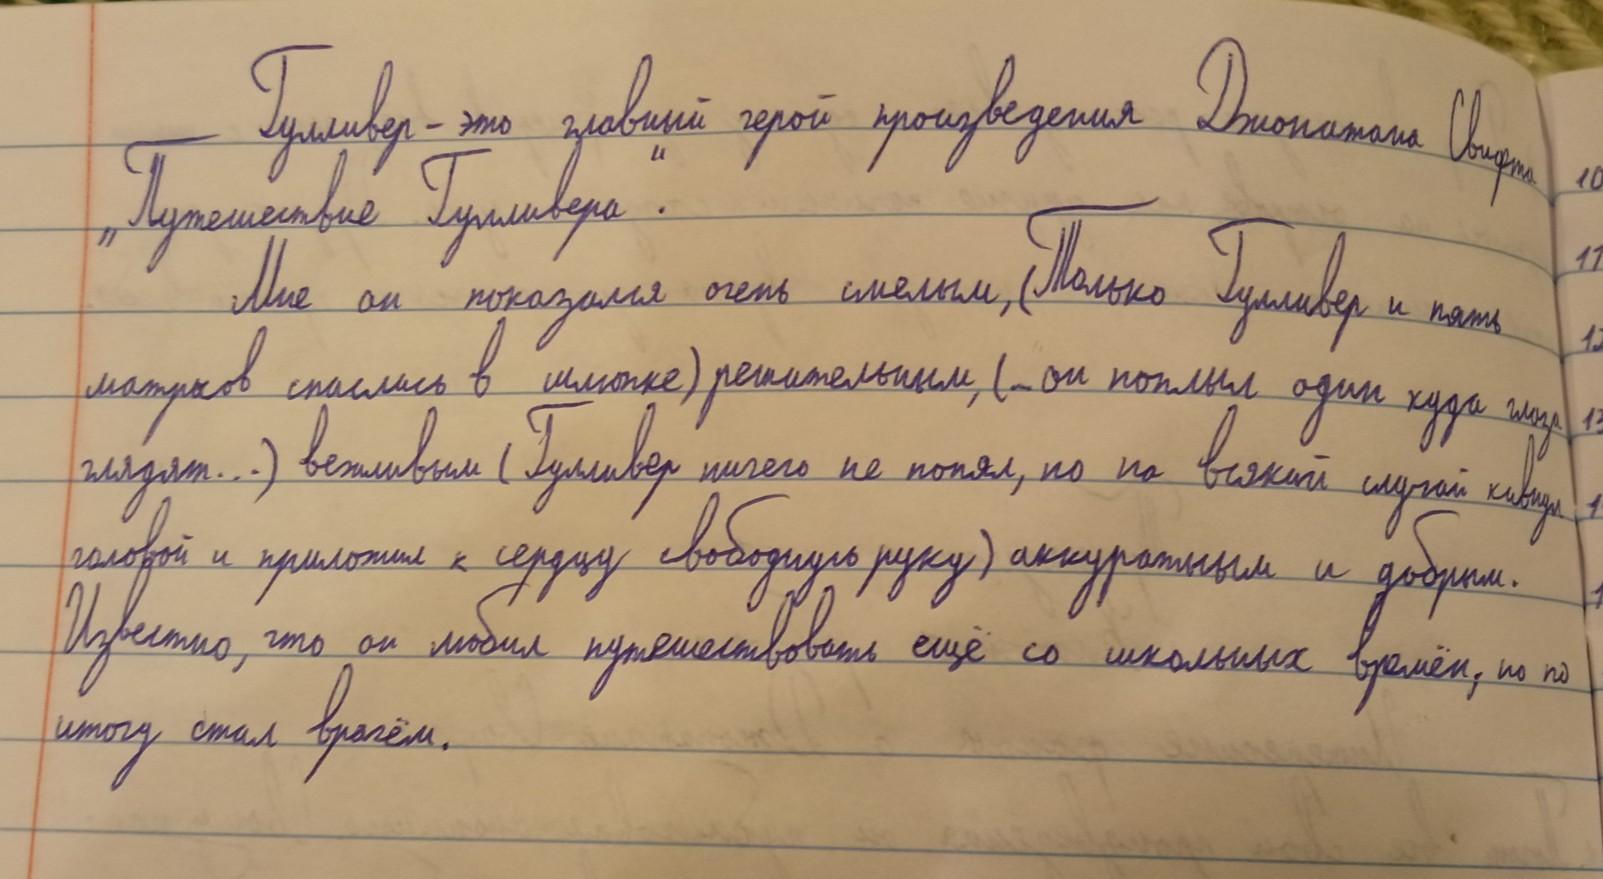 Гулливер – это главный герой произведения Джонатана Свифта
„Путешествие Гулливера“.
Мне он показался очень смелым, (Только Гулливер и пять
матросов спаслись в шлюпке) решительным, (...он поплыл один куда глаза
глядят...) вежливым (Гулливер ничего не понял, но на всякий случай кивнул
головой и приложил к сердцу свободную руку) аккуратным и добрым.
Известно, что он любил путешествовать ещё со школьных времён, но по
итогу стал врачём.
10
11
12
13
1
1